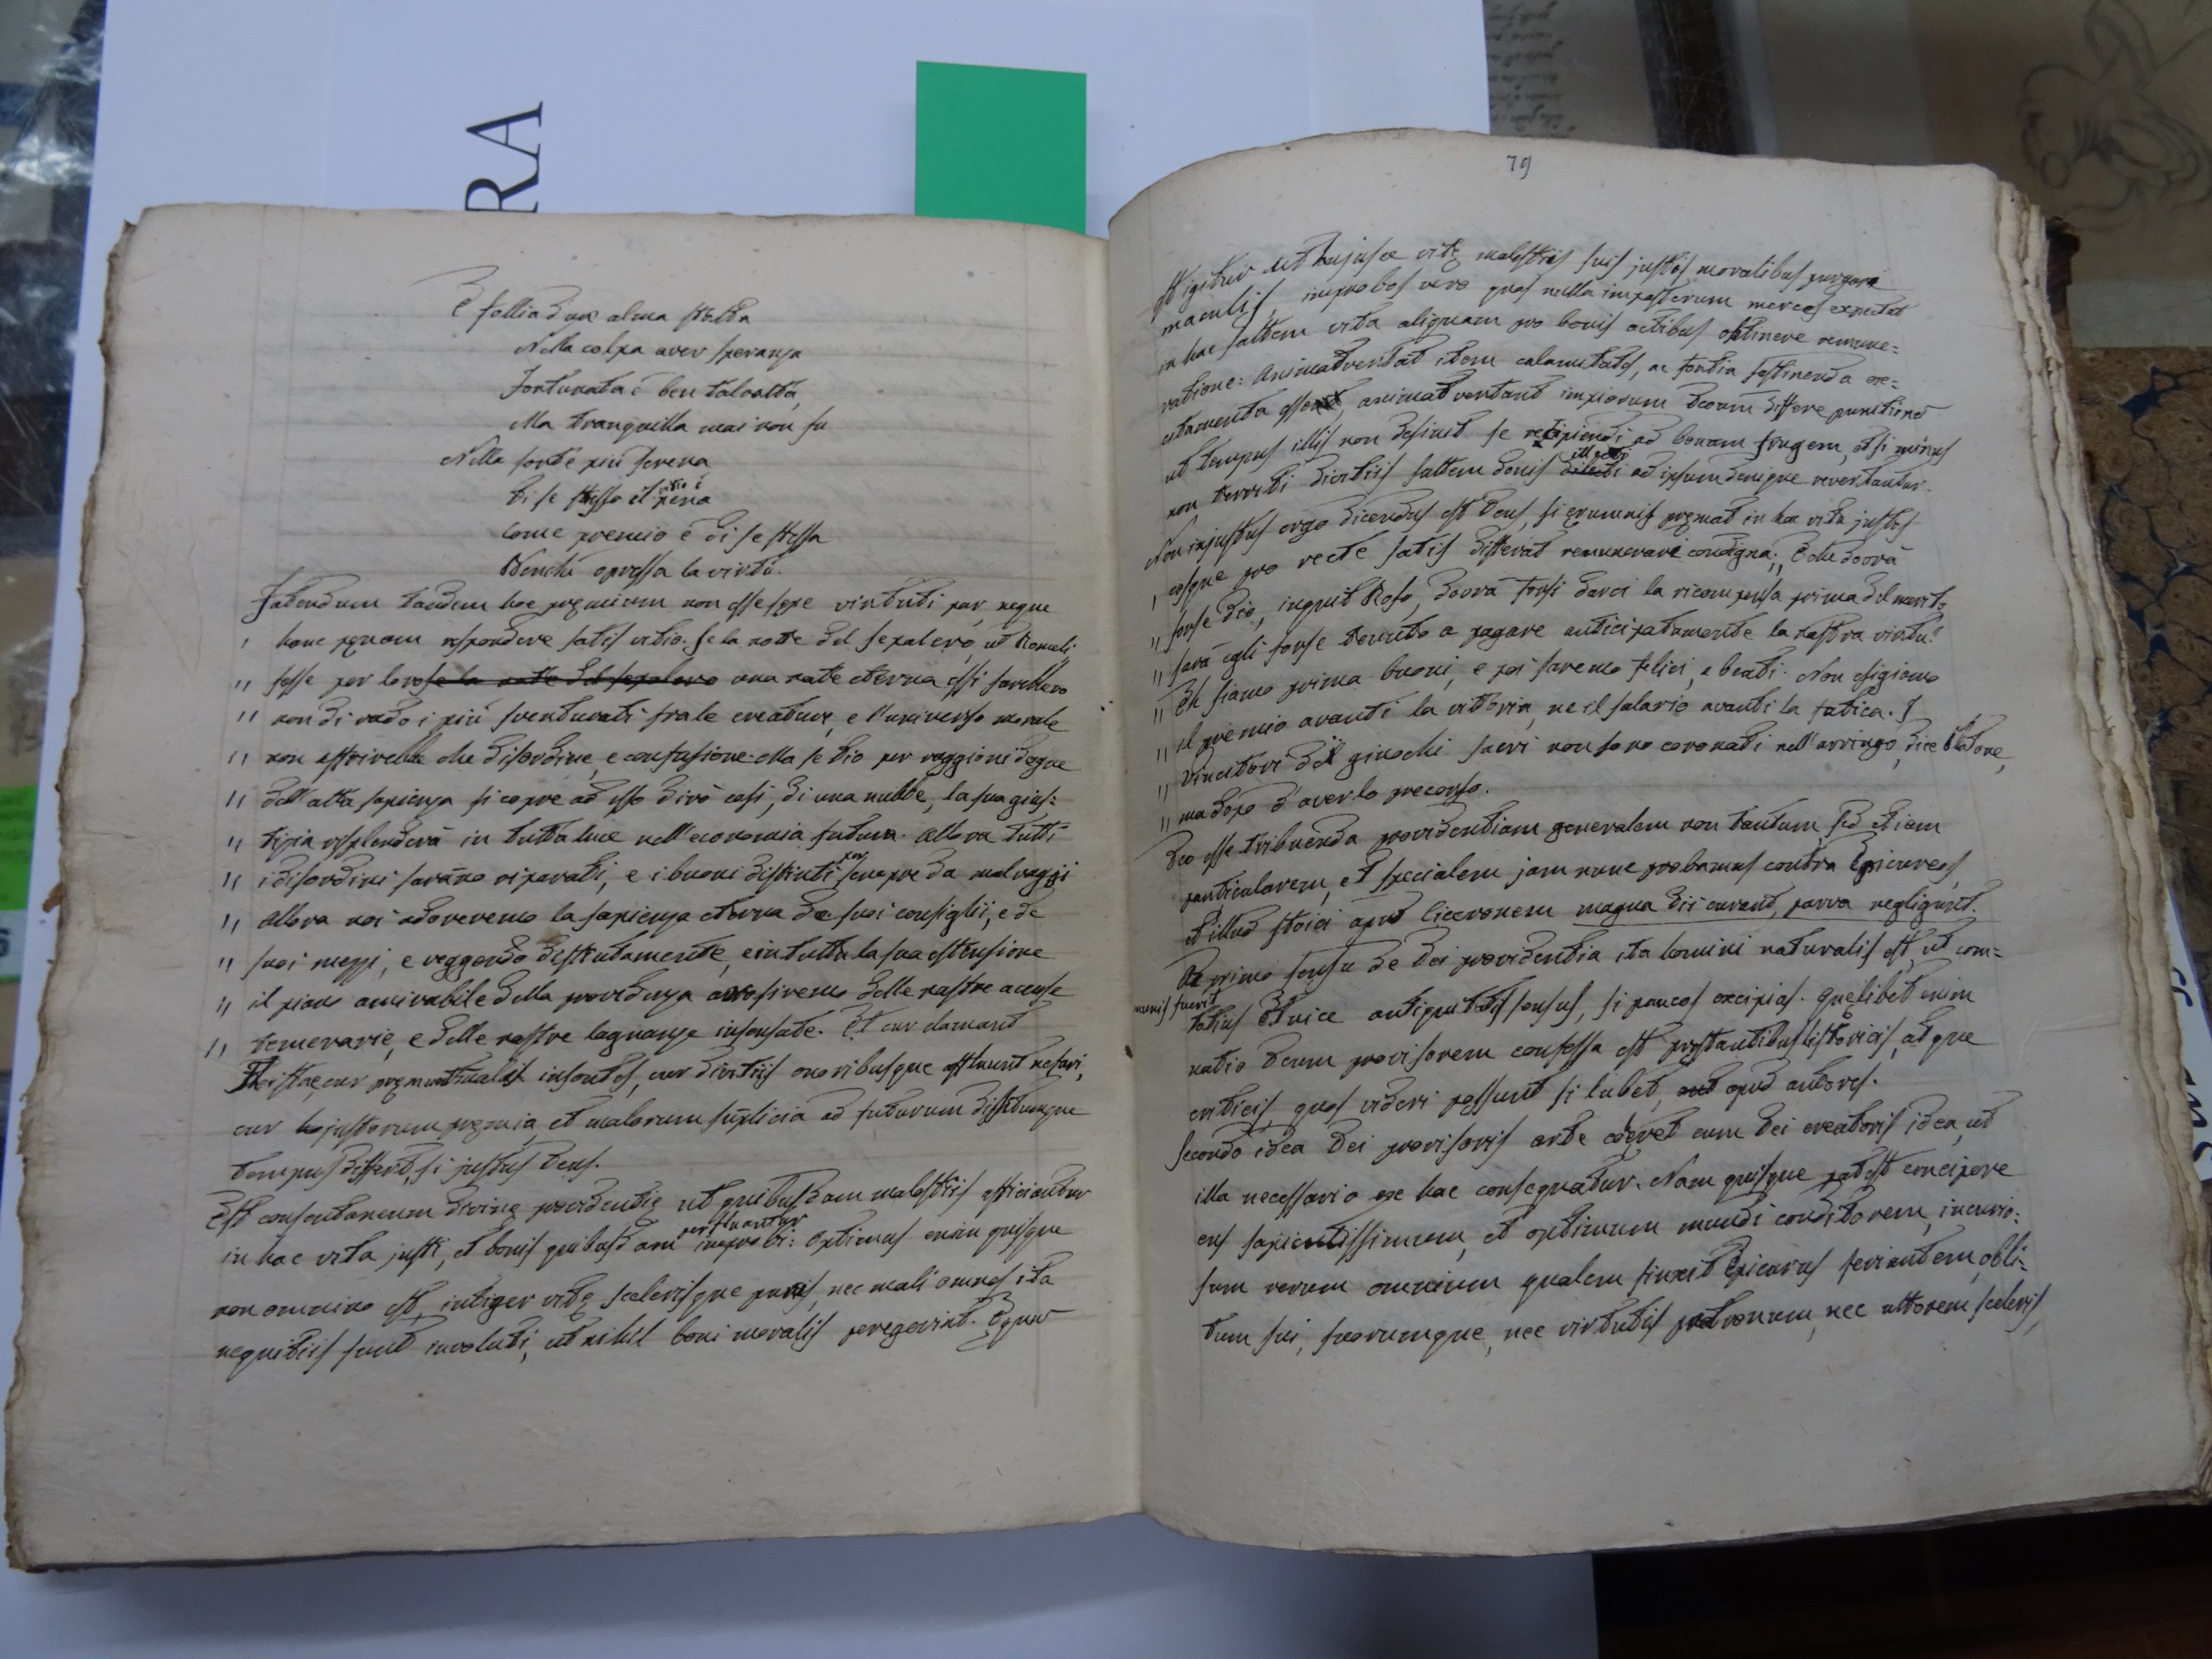 RA
È follia d'un alma stolta
Nella colpa aver speranza
Fortunata è ben talvolta,
Ma tranquilla mai non fu
Nella sorte più serena
Di se stesso il vitio è pena
Come premio è di se stessa
Benchè opressa la virtù.
Fatendum tandem hoc premium non esse spe virtuti par, neque
hanc penam respondere satis vitio. Se la notte del sepolcro, ut Romuli
fosse per loro se la notte del sepolcro una notte eterna essi sarebbero
non di rado i più sventurati fra le creature, e l'universo morale
non offrirebbe che disordine, e confusione. Ma se Dio per raggioni degne
dell'alta sapienza si copre ad esso dirò così, di una nubbe, la sua gius=
tizia risplenderà in tutta luce nell'economia futura. Allora tutti
i disordini saranno riparati, e i buoni distinti per sempre da malvaggi
Allora noi adoreremo la sapienza eterna de suoi consiglii, e de
suoi mezzi, e veggendo distintamente, e in tutta la sua estensione
il piano amirabile della providenza arrosiremo delle nostre accuse
temerarie, e delle nostre lagnanze insensate. Et cur clamant
cur premunt malis insontes, cur divitiis onoribusque affluunt nefari,
cur justorum premia, et malorum suplicia ad futurum
tempus differt, si justus Deus.
Est consentaneum divine providentie ut quibusdam molestiis afficiantur
in hac vita justi, et bonis quibusdam perfruantur improbi: Optimus enim quisque
non omnino est, integer vite scelerisque purus, nec mali omnes ita
nequitiis sunt involuti, ut nihil boni moralis peregerint. Equum
79
est igitur ut hujusce vite molestiis suis justos moralibus purgari
maculis, improbos vero quos nulla imposterum merces expectat
in hac saltem vita aliquam pro bonis actibus obtinere remune=
ratione: Animadvertat item calamitates, ac fortia sustinenda ex=
citamenta esse, animadvertant impiorum Deum differe punitione
ut tempus illis non desinit se recipiendi ad bonam frugem, et si minus
non territi divitiis saltem donis illecti ad ipsum denique revertantur.
Non injustus ergo dicendus est Deus, si erumnis premat in hac vita justos
eosque pro recte satis differat remunerari condigna; E che dovrà
forse Dio, inquit Roso, dovrà forsi darci la ricompensa prima del merito
sarà egli forse tenuto a pagare anticipatamente la nostra virtù?
Eh siamo prima buoni, e poi saremo felici, e beati. Non esigiamo
il premio avanti la vittoria, ne il salario avanti la fatica. I
vincitori dei giuochi sacri non sono coronati nell'arringo, dice Platone,
ma dopo d'averlo precorso.
Deo esse tribuenda providentiam generalem non tantum sed etiam
particularem, et specialem jam nunc probamus contra Epicureos,
et illud stoici apud Ciceronem magna Dii curant, parva negligunt.
Ac primo sensu de Dei providentia ita homini naturalis est, ut com=
munis fuerit
totius antiquitatis sensus, si paucos excipias. Quelibet enim
natio Deum provisorem confessa est prestantibus historicis, atque
criticis, quos videri possunt si lubet, apud autores.
Secondo idea Dei provisoris arte coeret cum Dei creatoris idea, ut
illa necessario ex hac consequatur. Nam quisque potest concipere
ens sapientissimum, et optimum mundi conditorem, incurio=
sum rerum omnium qualem finxit Epicurus feriantem, obli=
tum sui, suorumque, nec virtutis patronum, nec ultorem sceleris,